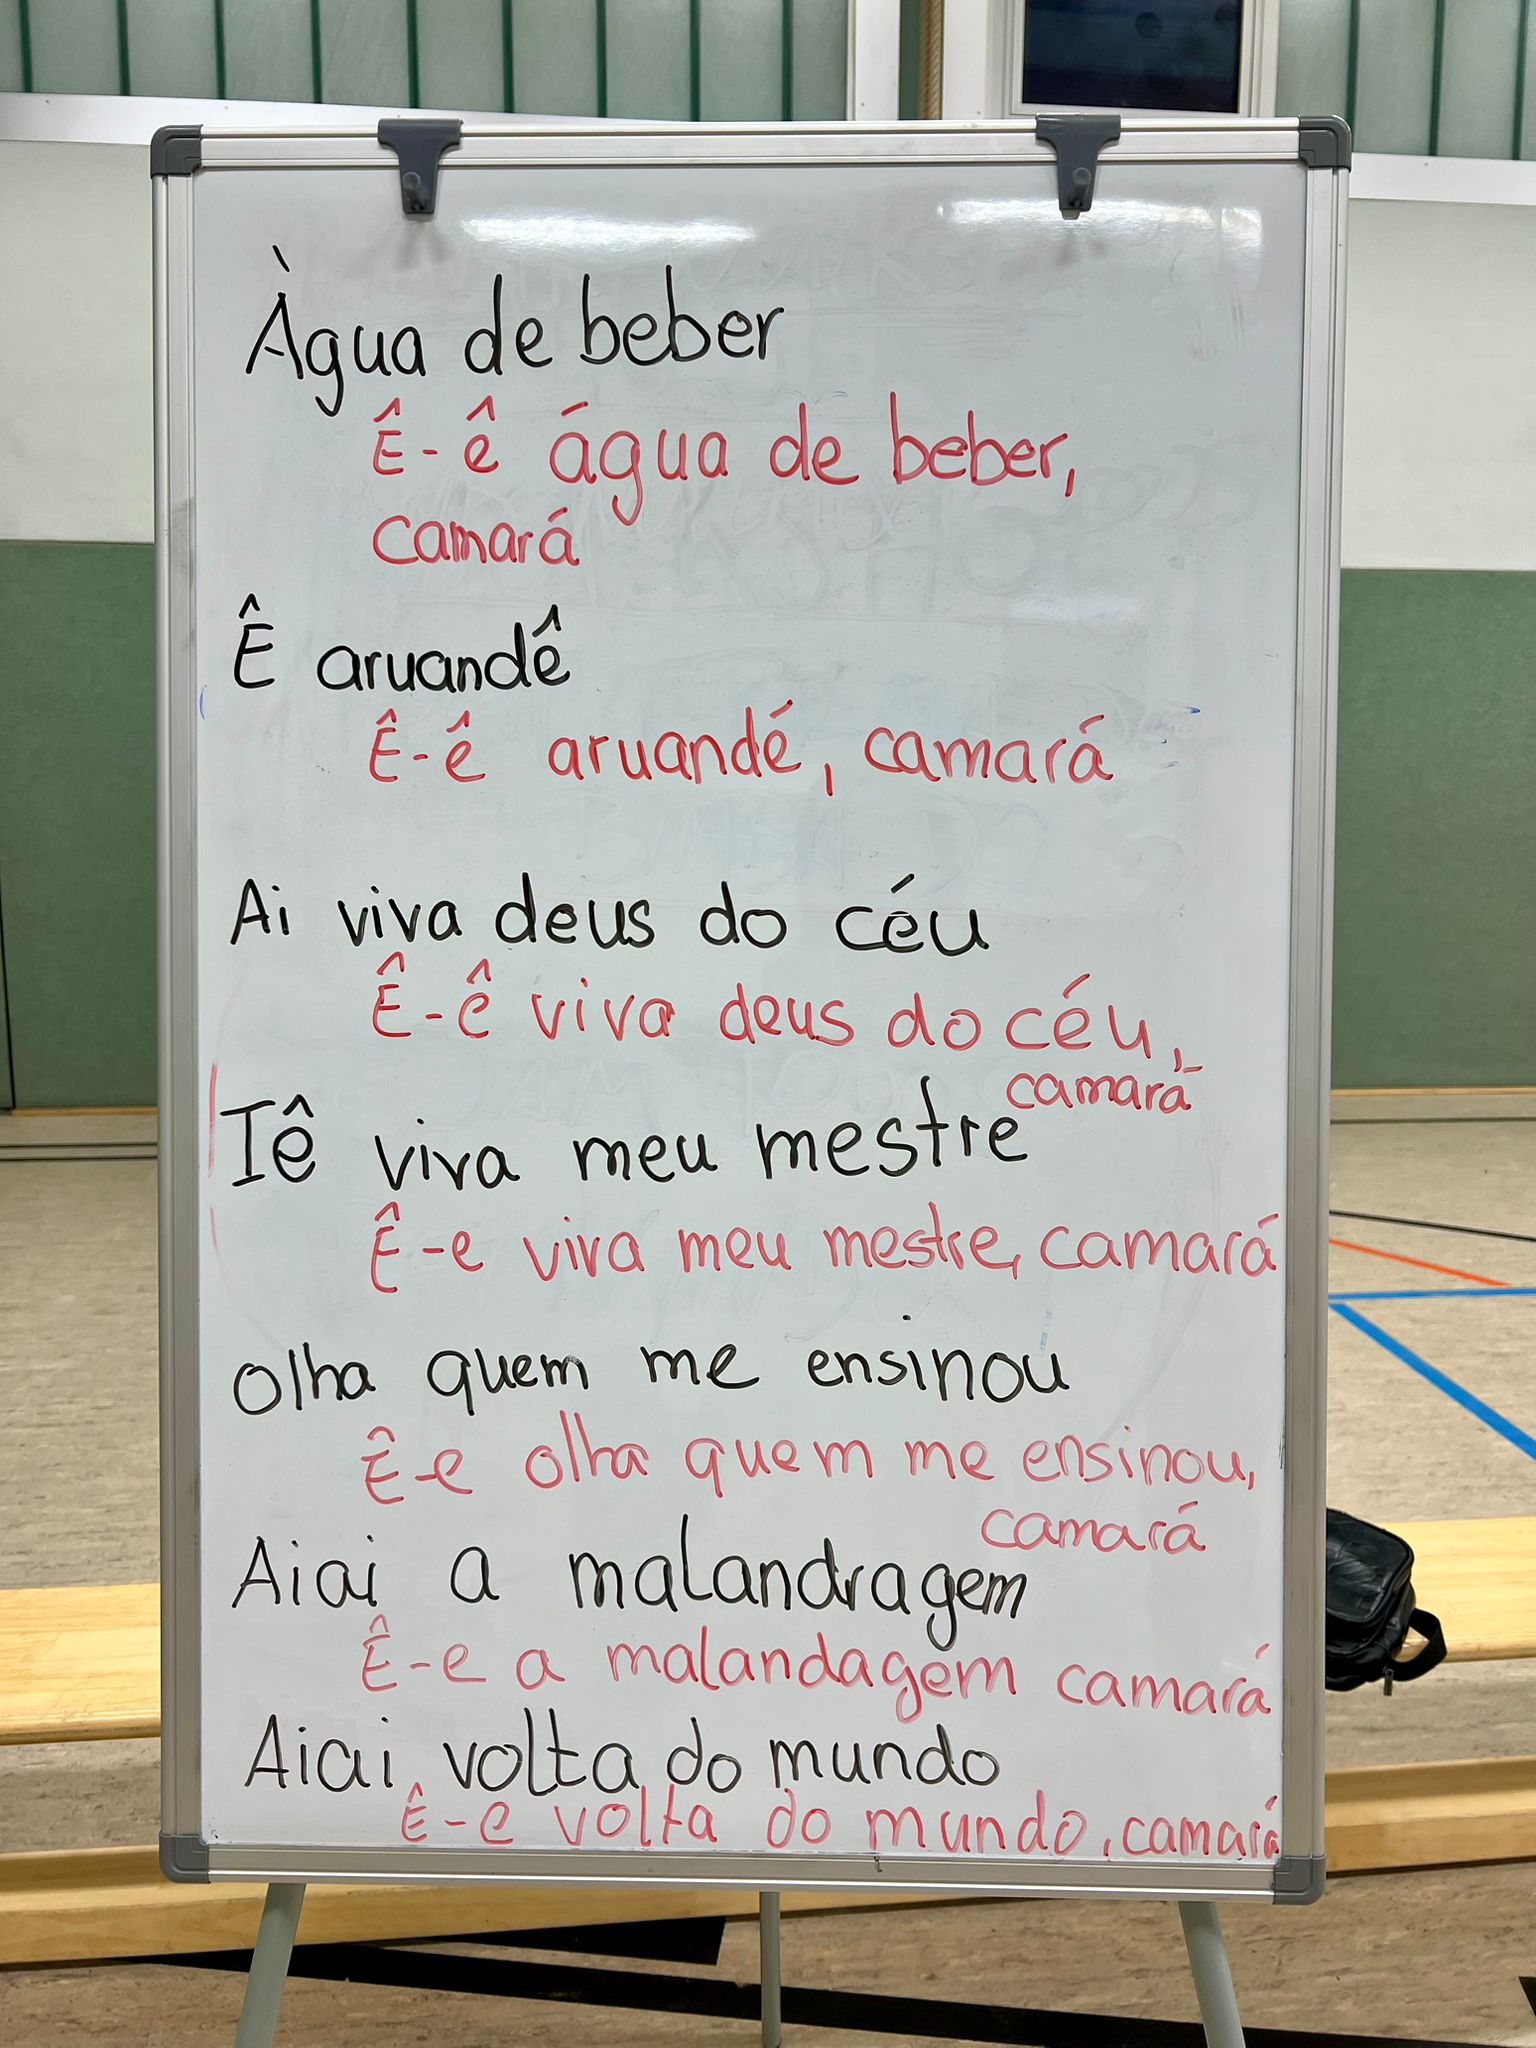 Àgua de beber
Ê-ê água de beber,
camará
Ê aruandê
Ê-ê aruandé, camará
Ai viva deus do céu
Ê-ê viva deus do céu,
camará
Iê viva meu mestre
Ê-e viva meu mestre, camará
olha quem me ensinou
Ê-e olha quem me ensinou,
camará
Aiai a malandragem
Ê-e a malandagem camará
Aiai volta do mundo
Ê-e volta do mundo, camará